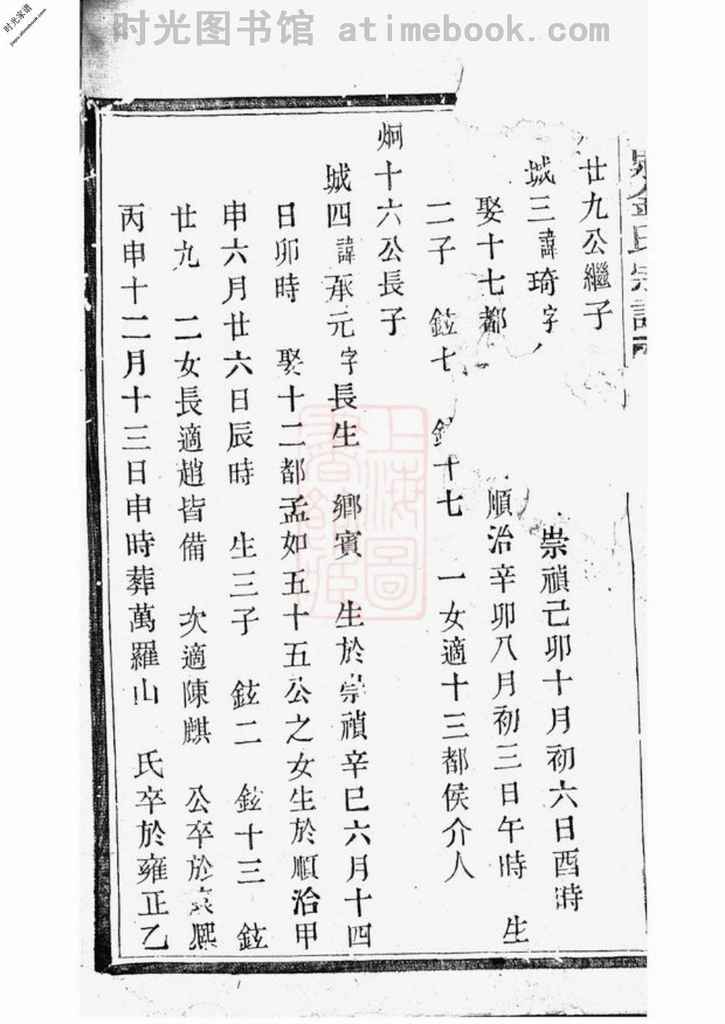 时光图书馆 atimebook.com
时光家谱
氏宗譜
廿九公繼子
城三諱琦字 崇禎己卯十月初六日酉時
娶十七都 順治辛卯八月初三日午時 生
二子 鉉七 鉉十七 一女適十三都侯介人
炯十六公長子
城四諱承元字長生 鄉賓 生於崇禎辛巳六月十四
日卯時 娶十二都孟如五十五公之女生於順治甲
申六月廿六日辰時 生三子 鉉二 鉉十三 鉉
廿九 二女長適趙皆備 次適陳麒 公卒於康熙
丙申十二月十三日申時葬萬羅山 氏卒於雍正乙
上海圖書館藏